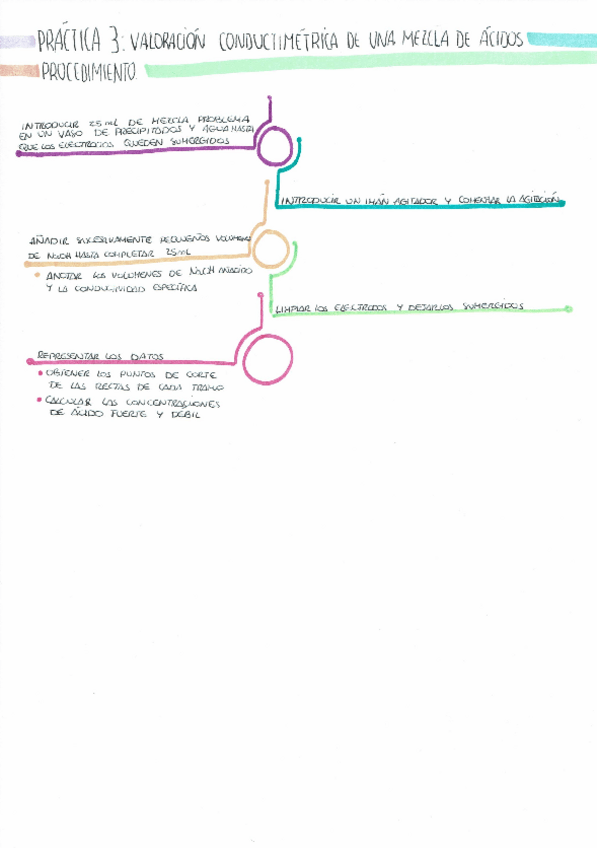 PRÁCTICA 3: VALORACIÓN CONDUCTIMÉTRICA DE UNA MEZCLA DE ÁCIDOS
PROCEDIMIENTO.
INTRODUCIR 25 mL DE MEZCLA PROBLEMA
EN UN VASO DE PRECIPITADOS Y AGUA HASTA
QUE LOS ELECTRODOS QUEDEN SUMERGIDOS
INTRODUCIR UN IMÁN AGITADOR Y COMENZAR LA AGITACIÓN
AÑADIR SUCESIVAMENTE PEQUEÑOS VOLÚMENES
DE NaOH HASTA COMPLETAR 25 mL
ANOTAR LOS VOLÚMENES DE NaOH AÑADIDO
Y LA CONDUCTIVIDAD ESPECÍFICA
LIMPIAR LOS ELECTRODOS Y DEJARLOS SUMERGIDOS
REPRESENTAR LOS DATOS
OBTENER LOS PUNTOS DE CORTE
DE LAS RECTAS DE CADA TRAMO
CALCULAR LAS CONCENTRACIONES
DE ÁCIDO FUERTE Y DÉBIL